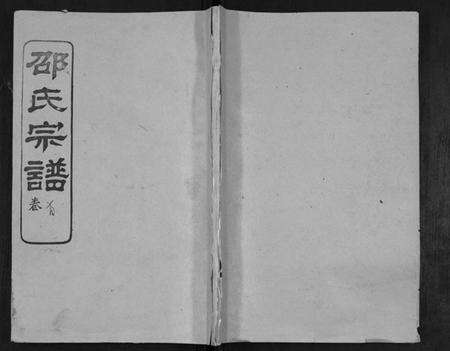 邵氏宗譜
卷